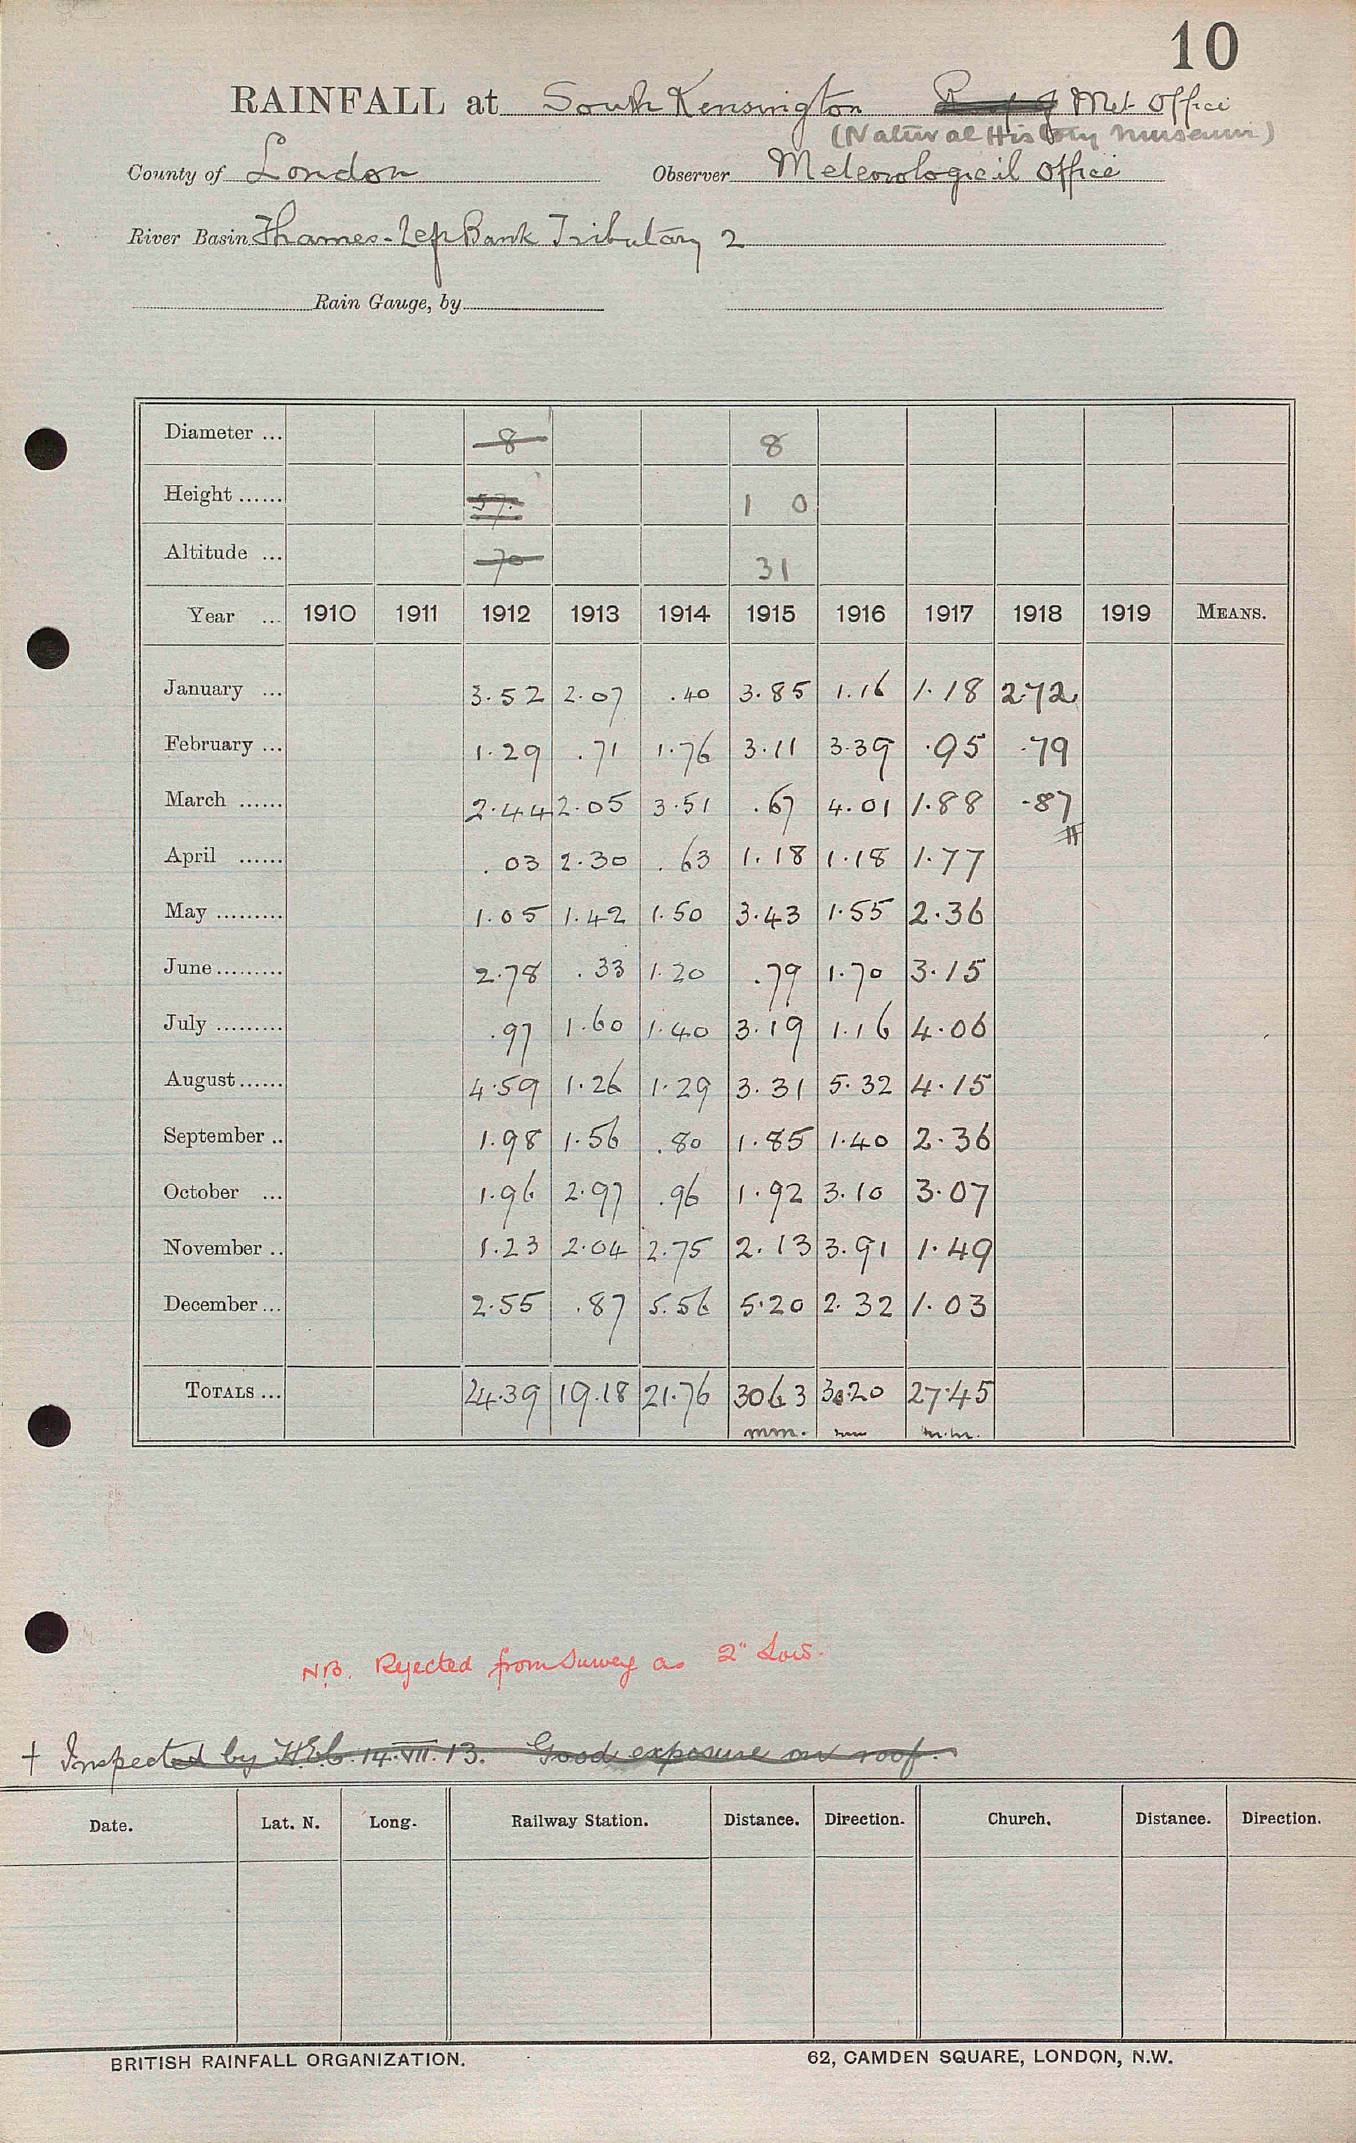 10
RAINFALL at South Kensington Roof of Met. Office
(Natural History Museum)
County of London Observer Meteorological Office
River Basin Thames - Left Bank Tributary 2
Rain Gauge, by
Diameter ... 8 8
Height ...... 57. 1 0
Altitude ... 70 31
Year ... 1910 1911 1912 1913 1914 1915 1916 1917 1918 1919 MEANS.
January ... 3.52 2.07 .40 3.85 1.16 1.18 2.72
February ... 1.29 .71 1.76 3.11 3.39 .95 .79
March ...... 2.44 2.05 3.51 .67 4.01 1.88 .87
April ...... .03 2.30 .63 1.18 1.18 1.77
May ......... 1.05 1.42 1.50 3.43 1.55 2.36
June ......... 2.78 .33 1.20 .79 1.70 3.15
July ......... .97 1.60 1.40 3.19 1.16 4.06
August ...... 4.59 1.26 1.29 3.31 5.32 4.15
September .. 1.98 1.56 .80 1.85 1.40 2.36
October ... 1.96 2.97 .96 1.92 3.10 3.07
November .. 1.23 2.04 2.75 2.13 3.91 1.49
December ... 2.55 .87 5.56 5.20 2.32 1.03
TOTALS ... 24.39 19.18 21.76 30.63 30.20 27.45
mm. mm m.m.
N.B. Rejected from Survey as 2" Low.
† Inspected by 14.VII.13. Good exposure on roof.
Date. Lat. N. Long. Railway Station. Distance. Direction. Church. Distance. Direction.
BRITISH RAINFALL ORGANIZATION. 62, CAMDEN SQUARE, LONDON, N.W.